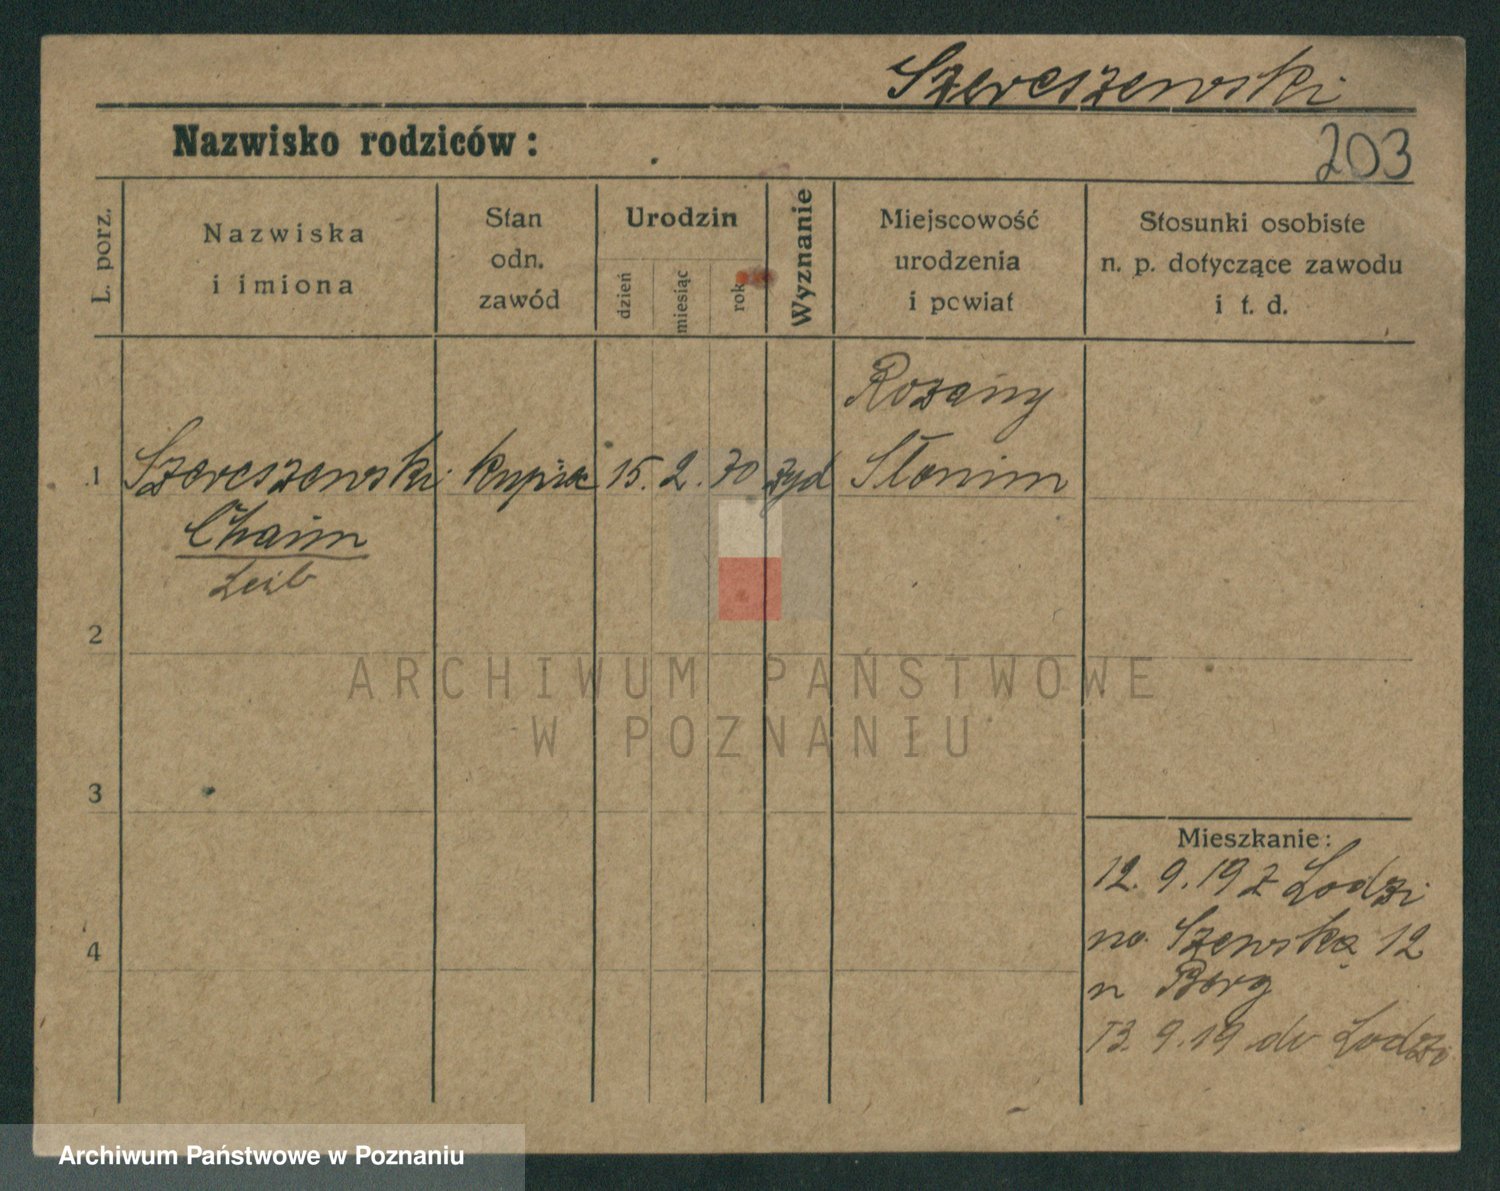 Szereszewski
Nazwisko rodziców:
203
L. porz.
Nazwiska
i imiona
Stan
odn.
zawód
Urodzin
dzień
miesiąc
rok
Wyznanie
Miejscowość
urodzenia
i powiat
Stosunki osobiste
n. p. dotyczące zawodu
i t. d.
Rozany
1 Szereszewski kupiec 15. 2. 70 żyd Słonim
Chaim
Leib
2
ARCHIWUM PAŃSTWOWE
W POZNANIU
3
Mieszkanie:
12. 9. 19 z Lodzi
na Szewską 12
4
u Berg
13. 9. 19 do Lodzi
Archiwum Państwowe w Poznaniu